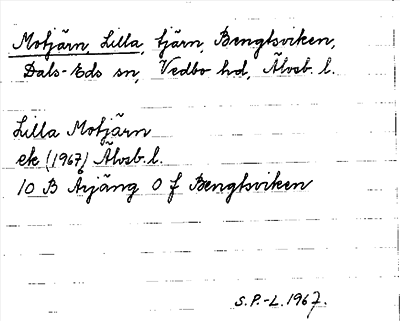 Motjärn, Lilla, tjärn, Bengtsviken,
Dals-Eds sn, Vedbo hd, Älvsb. l.
Lilla Motjärn
ek (1967) Älvsb. l.
10 B Årjäng 0 f Bengtsviken
S.P.-L. 1967.